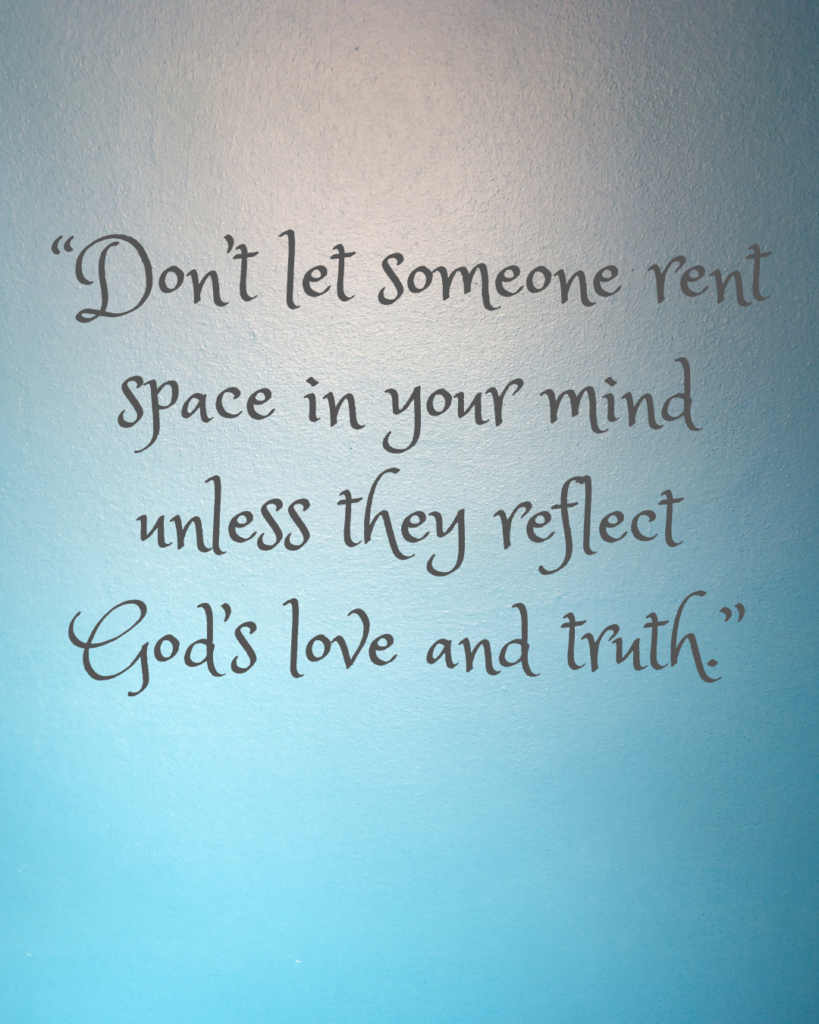 “Don’t let someone rent
space in your mind
unless they reflect
God’s love and truth.”